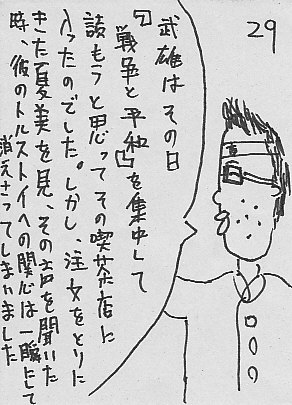 29
武雄はその日
『戦争と平和』を集中して
読もうと思ってその喫茶店に
入ったのでした。しかし、注文をとりに
きた夏美を見、その声を聞いた
時、彼のトルストイへの関心は一瞬にして
消えさってしまいました